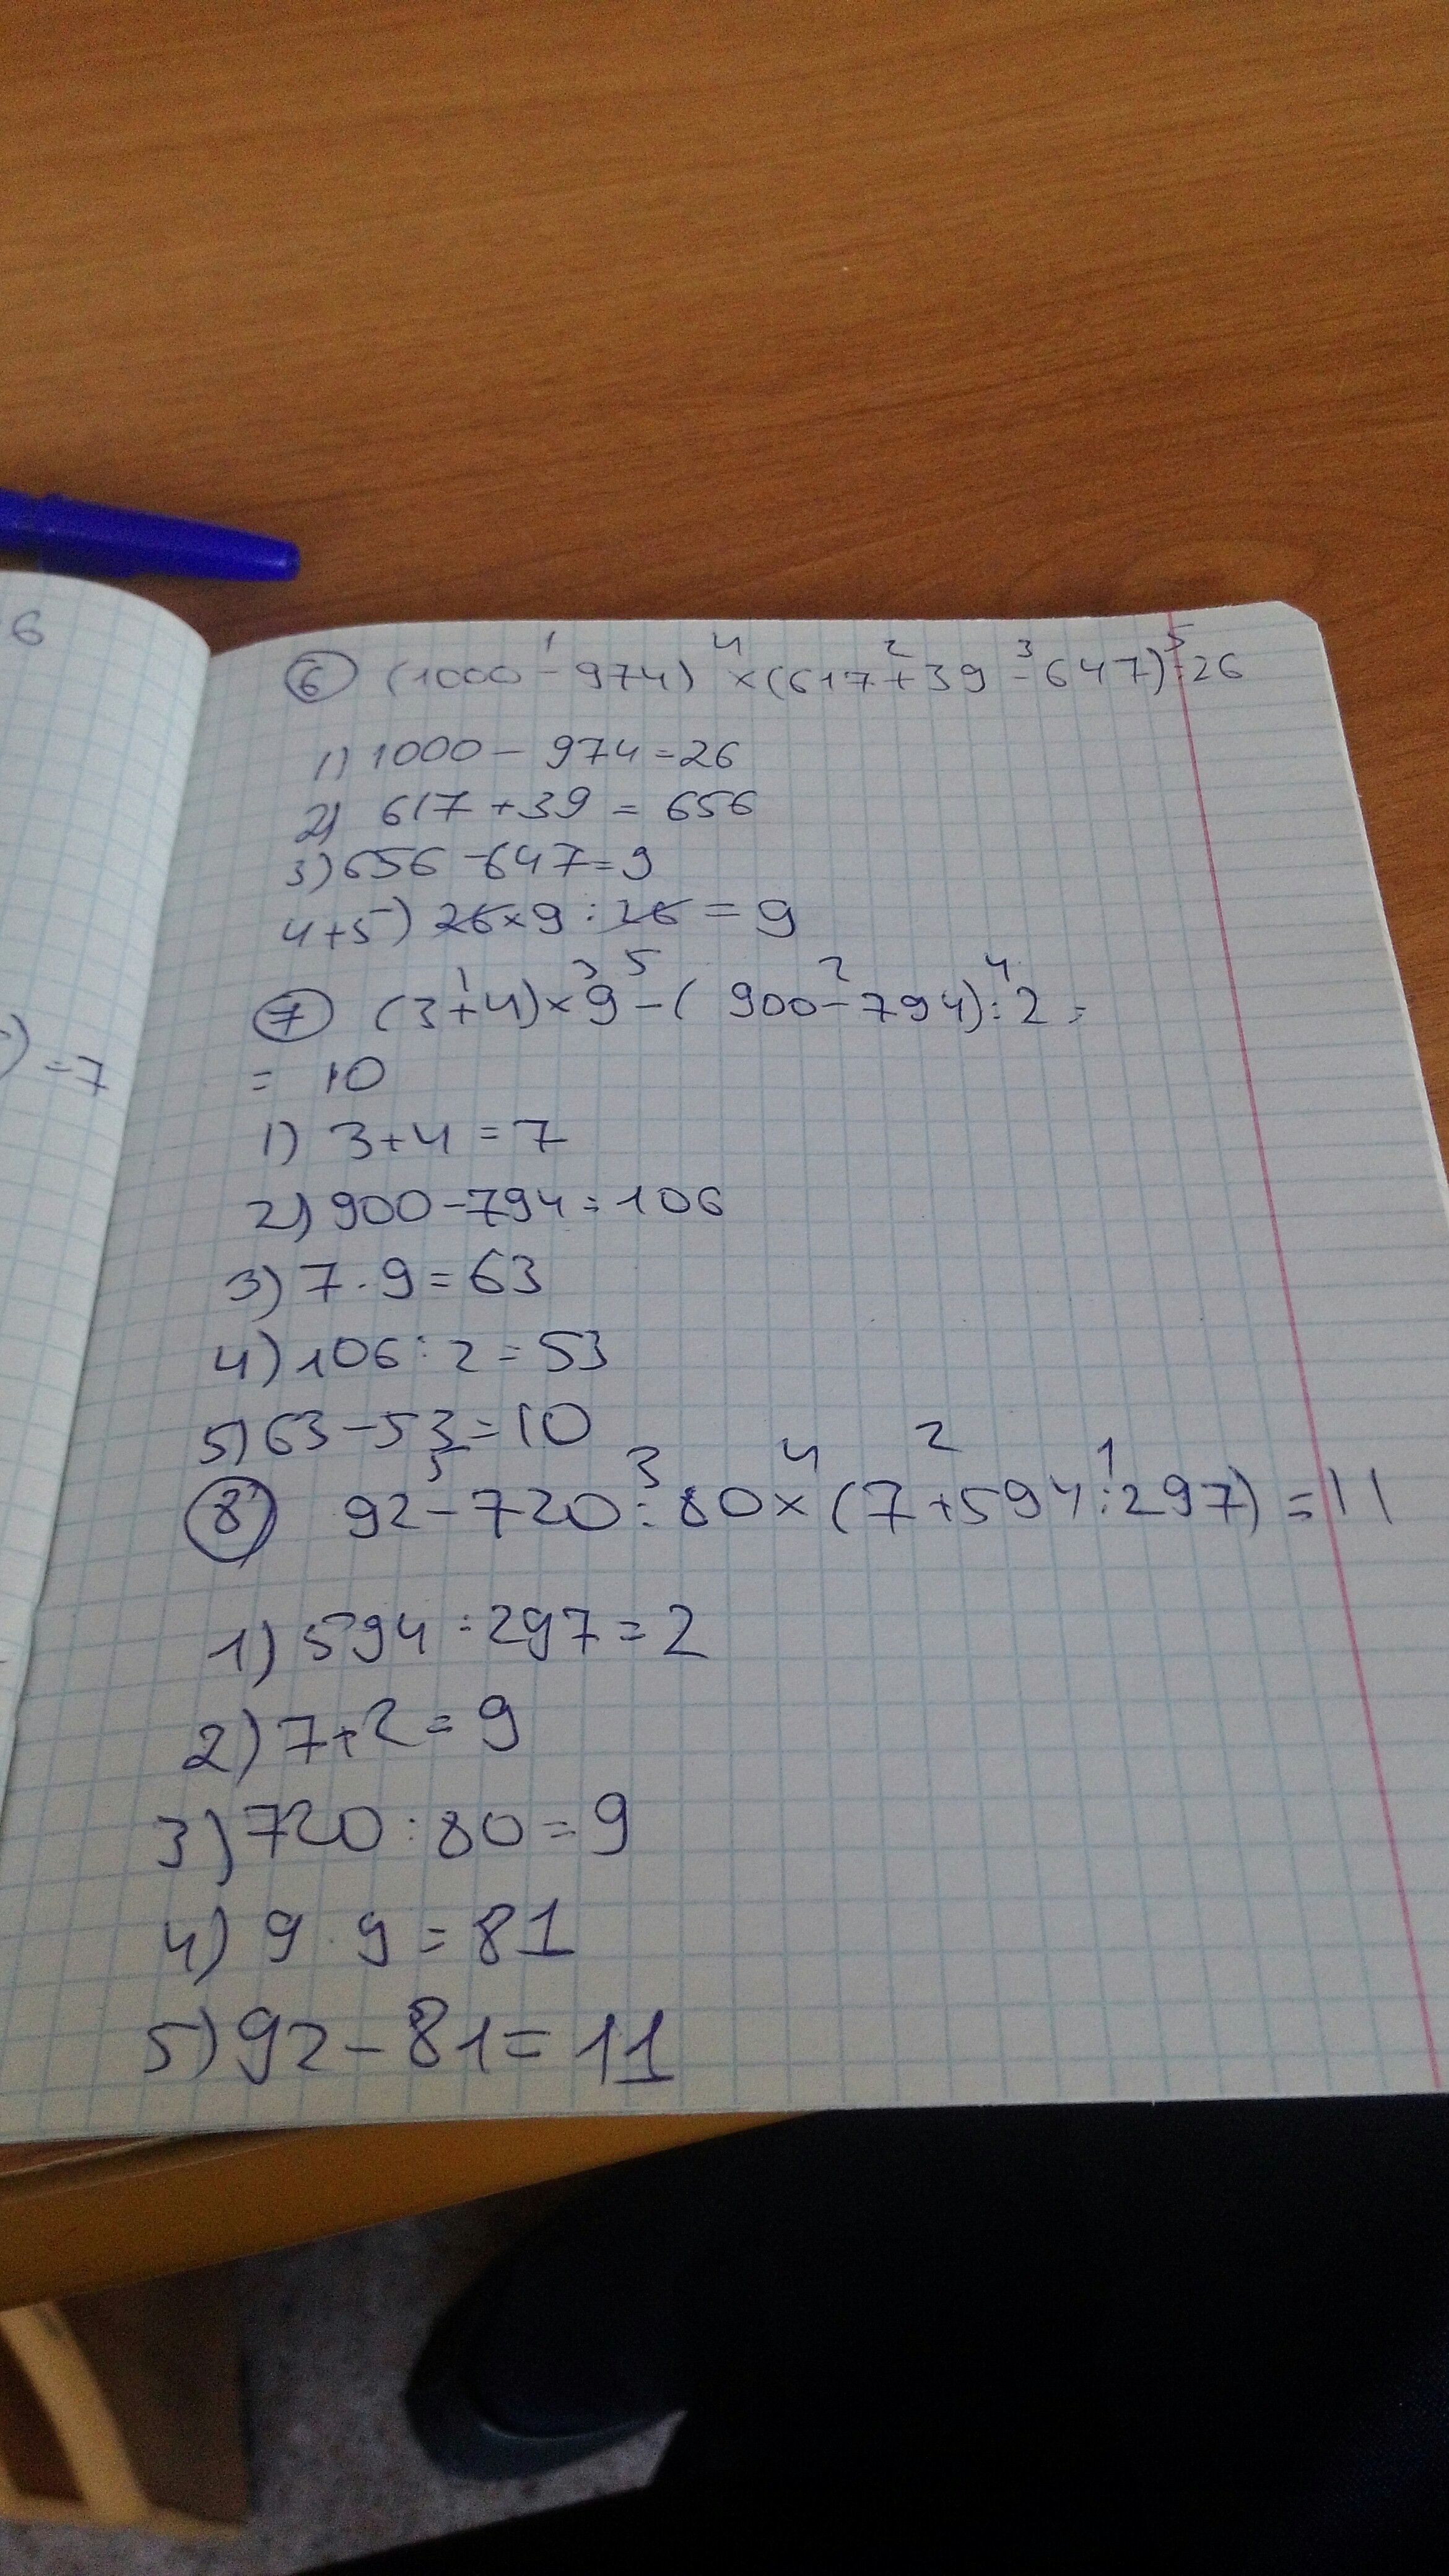 6
) =7
6 (1000 - 974) × (617 + 39 - 647) : 26
1 4 2 3 5
1) 1000 - 974 = 26
2) 617 + 39 = 656
3) 656 - 647 = 9
4+5) 26 × 9 : 26 = 9
1 3 5 2 4
7 (3+4) × 9 - (900 - 794) : 2 =
= 10
1) 3+4 = 7
2) 900 - 794 = 106
3) 7 · 9 = 63
4) 106 : 2 = 53
5) 63 - 53 = 10
5 3 4 2 1
8 92 - 720 : 80 × (7 + 594 : 297) = 11
1) 594 : 297 = 2
2) 7 + 2 = 9
3) 720 : 80 = 9
4) 9 · 9 = 81
5) 92 - 81 = 11